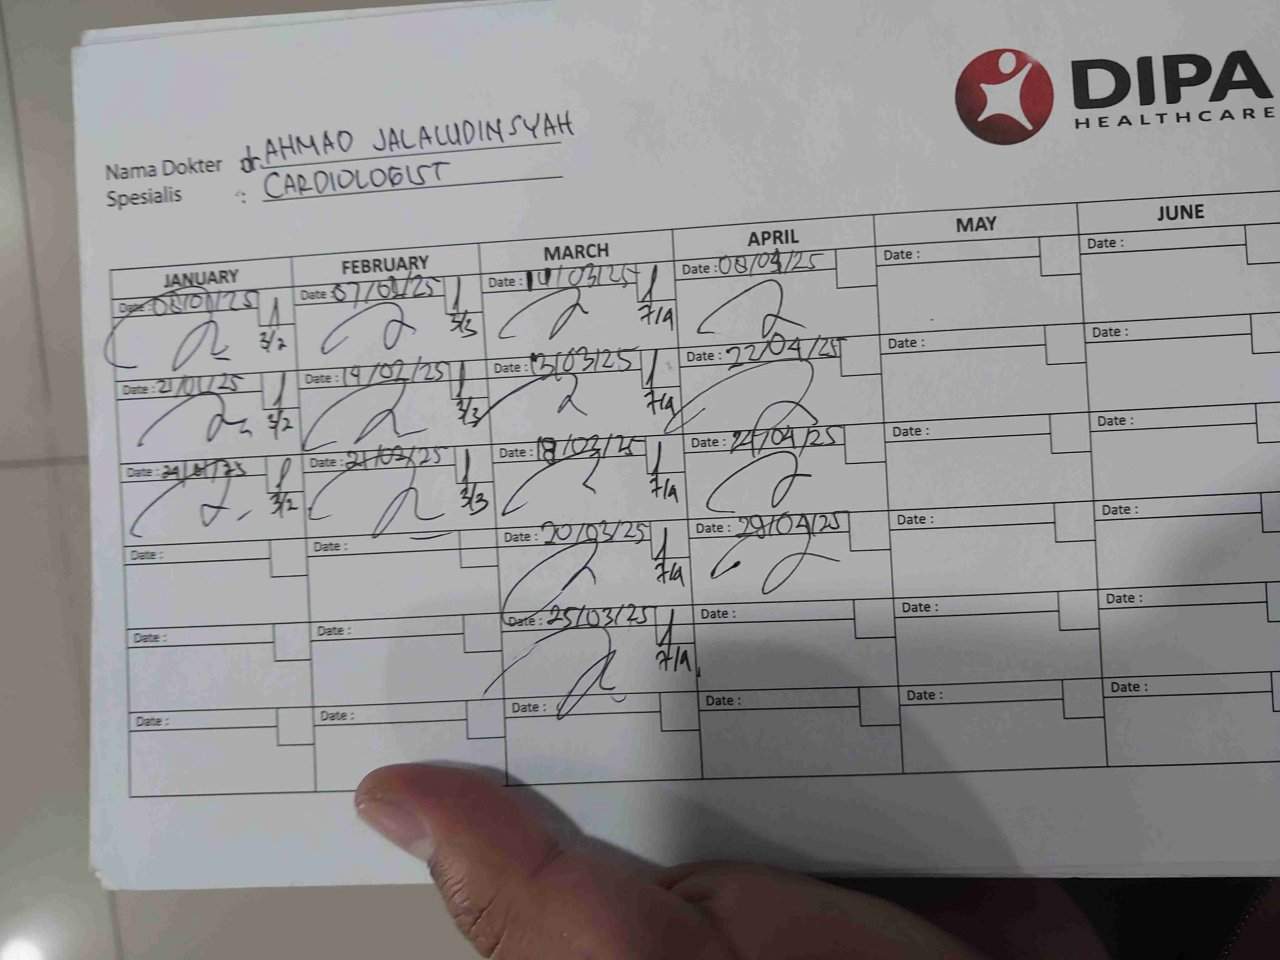 DIPA
HEALTHCARE
Nama Dokter dr. AHMAD JALALUDINSYAH
Spesialis : CARDIOLOGIST
JANUARY FEBRUARY MARCH APRIL MAY JUNE
Date : 08/01/25 Date : 07/02/25 Date : 10/03/25 Date : 08/04/25 Date : Date :
3/2 3/3 7/4
Date : 21/01/25 Date : 19/02/25 Date : 13/03/25 Date : 22/04/25 Date : Date :
3/2 3/3 7/4
Date : Date : 21/02/25 Date : 18/03/25 Date : 24/04/25 Date : Date :
3/2 3/3 7/4
Date : Date : Date : 20/03/25 Date : 29/04/25 Date : Date :
7/4
Date : Date : Date : 25/03/25 Date : Date : Date :
7/4
Date : Date : Date : Date : Date : Date :